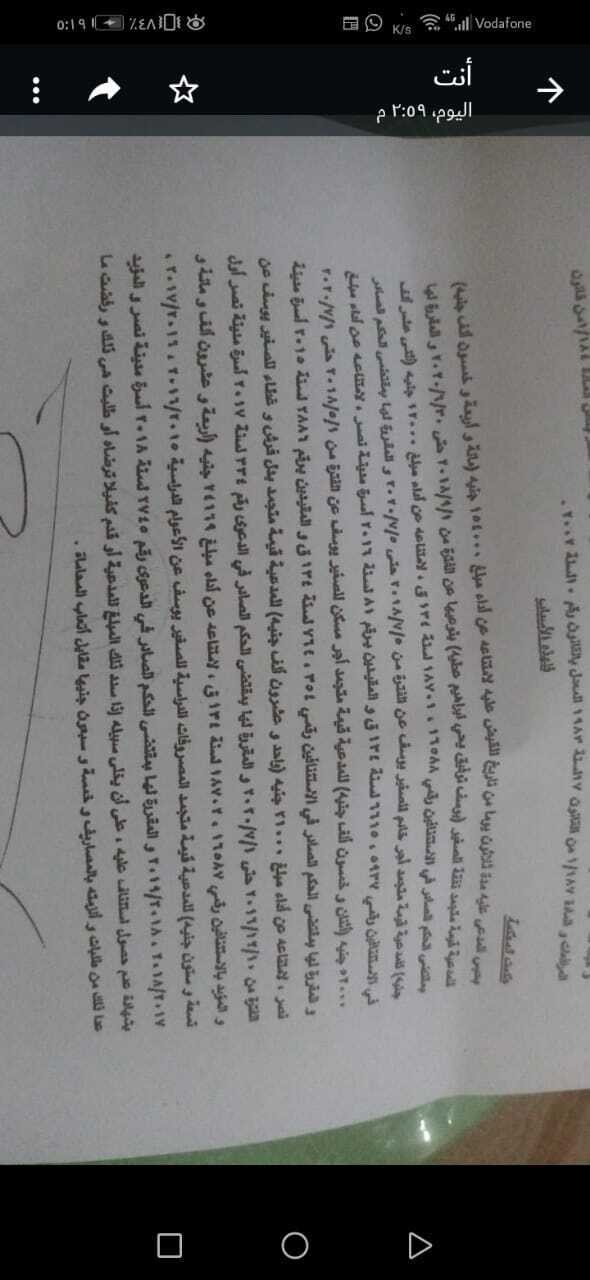 ٥:١٩ ٪٤٨ K/s 4G Vodafone
أنت
اليوم، ٢:٥٩ م
المرافعات و المادة ١/١٨٧ من القانون ٧ لسنة ١٩٨٣ المعدل بالقانون رقم ١٠ لسنة ٢٠٠٧ .
فلهذه الأسباب
حكمت المحكمة
بحبس المدعى عليه مدة ثلاثون يوما من تاريخ القبض عليه لامتناعه عن أداء مبلغ ١٥٤٠٠٠ جنيه (مائة و أربعة و خمسون ألف جنيه)
للمدعية قيمة متجمد نفقة الصغير (يوسف توفيق يحي ابراهيم عطيه) بنوعيها عن الفترة من ٢٠١٨/٩/١ حتى ٢٠٢٠/٦/٣٠ و المقررة لها
بمقتضى الحكم الصادر في الاستئنافين رقمي ١٦٥٨٨ ، ١٨٧٠١ لسنة ١٣٤ ق ، لامتناعه عن أداء مبلغ ١٢٠٠٠ جنيه (اثنى عشر ألف
جنيه) للمدعية قيمة متجمد أجر خادم للصغير يوسف عن الفترة من ٢٠١٨/٧/٥ حتى ٢٠٢٠/٧/٥ و المقررة لها بمقتضى الحكم الصادر
في الاستئنافين رقمي ٥٩٣٧ ، ٦٦١٥ لسنة ١٣٤ ق و المقيدين برقم ٨١ لسنة ٢٠١٦ أسرة مدينة نصر ، لامتناعه عن أداء مبلغ
٥٢٠٠٠ جنيه (اثنان و خمسون ألف جنيه) للمدعية قيمة متجمد أجر مسكن للصغير يوسف عن الفترة من ٢٠١٨/٥/١ حتى ٢٠٢٠/٧/١
و المقررة لها بمقتضى الحكم الصادر في الاستئنافين رقمي ٣٥٤ ، ٧٦٤ لسنة ١٣٤ ق و المقيدين برقم ٢٨٨٦ لسنة ٢٠١٥ أسرة مدينة
نصر ، لامتناعه عن أداء مبلغ ٢١٠٠٠ جنيه (واحد و عشرون ألف جنيه) للمدعية قيمة متجمد بدل فرش و غطاء للصغير يوسف عن
الفترة من ٢٠١٦/١٢/١٠ حتى ٢٠٢٠/٧/١ و المقررة لها بمقتضى الحكم الصادر في الدعوى رقم ٣٣٤ لسنة ٢٠١٧ أسرة مدينة نصر أول
و المؤيد بالاستئنافين رقمي ١٦٥٨٧ ، ١٨٧٠٢ لسنة ١٣٤ ق ، لامتناعه عن أداء مبلغ ٢٤١٦٩ جنيه (أربعة و عشرون ألف و مائة و
تسعة و ستون جنيه) للمدعية قيمة متجمد المصروفات الدراسية للصغير يوسف عن الأعوام الدراسية ٢٠١٦/٢٠١٥ ، ٢٠١٧/٢٠١٦ ،
٢٠١٨/٢٠١٧ ، ٢٠١٩/٢٠١٨ و المقررة لها بمقتضى الحكم الصادر في الدعوى رقم ٢٧٤٥ لسنة ٢٠١٨ أسرة مدينة نصر و المؤيد
بشهادة عدم حصول استئناف عليه ، على أن يخلى سبيله إذا سدد ذلك المبلغ للمدعية أو قدم كفيلا ترضاه أو طلبت هي ذلك و رفضت ما
عدا ذلك من طلبات و ألزمته بالمصاريف و خمسة و سبعون جنيها مقابل أتعاب المحاماة .